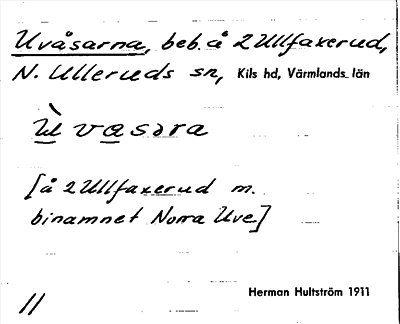 Uvåsarna, beb. å 2 Ullfaxerud,
N. Ulleruds sn, Kils hd, Värmlands län
ùvasara
[å 2 Ullfaxerud m.
binamnet Norra Uve]
11 Herman Hultström 1911